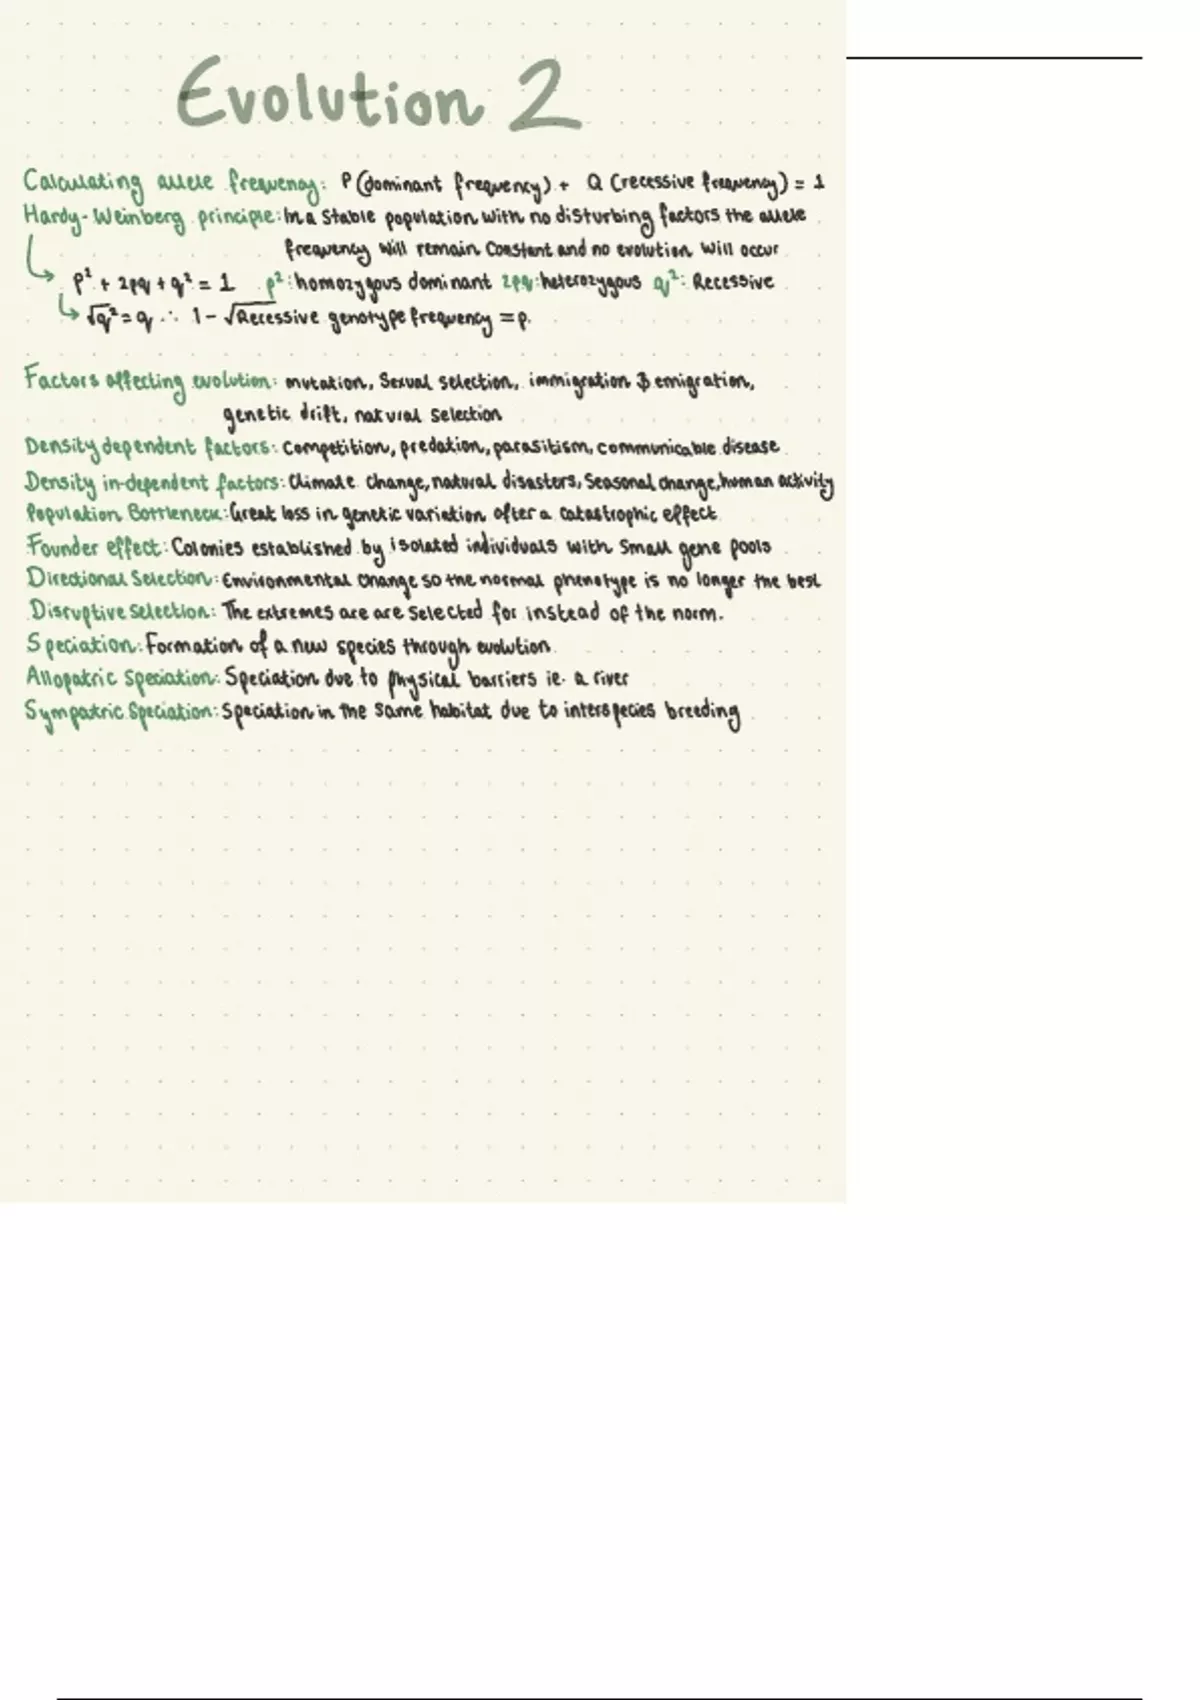 Evolution 2
Calculating allele frequency: P (dominant frequency) + Q (recessive frequency) = 1
Hardy-Weinberg principle: In a stable population with no disturbing factors the allele
frequency will remain constant and no evolution will occur
p² + 2pq + q² = 1 p²: homozygous dominant 2pq: heterozygous q²: Recessive
√q² = q ∴ 1 - √Recessive genotype frequency = p.
Factors affecting evolution: mutation, Sexual selection, immigration & emigration,
genetic drift, natural selection
Density dependent factors: Competition, predation, parasitism, communicable disease
Density in-dependent factors: Climate change, natural disasters, Seasonal change, human activity
Population Bottleneck: Great loss in genetic variation after a catastrophic effect
Founder effect: Colonies established by isolated individuals with small gene pools
Directional Selection: Environmental change so the normal phenotype is no longer the best
Disruptive selection: The extremes are are selected for instead of the norm.
Speciation: Formation of a new species through evolution
Allopatric Speciation: Speciation due to physical barriers ie. a river
Sympatric Speciation: Speciation in the same habitat due to interspecies breeding